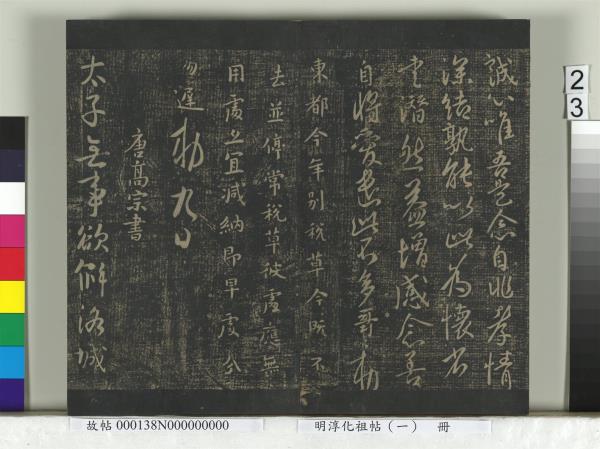 誠心唯吾是念自非孝情
深結孰能以此為懷省
書潸然益增感念善
自將愛遣此不多哥勑
東都今年別稅草今既不
去並停常稅草彼處應無
用處亦宜減納即早處分
勿遲勑九日
唐高宗書
太子無事欲洛城
23
故帖 000138N000000000
明淳化祖帖（一） 冊